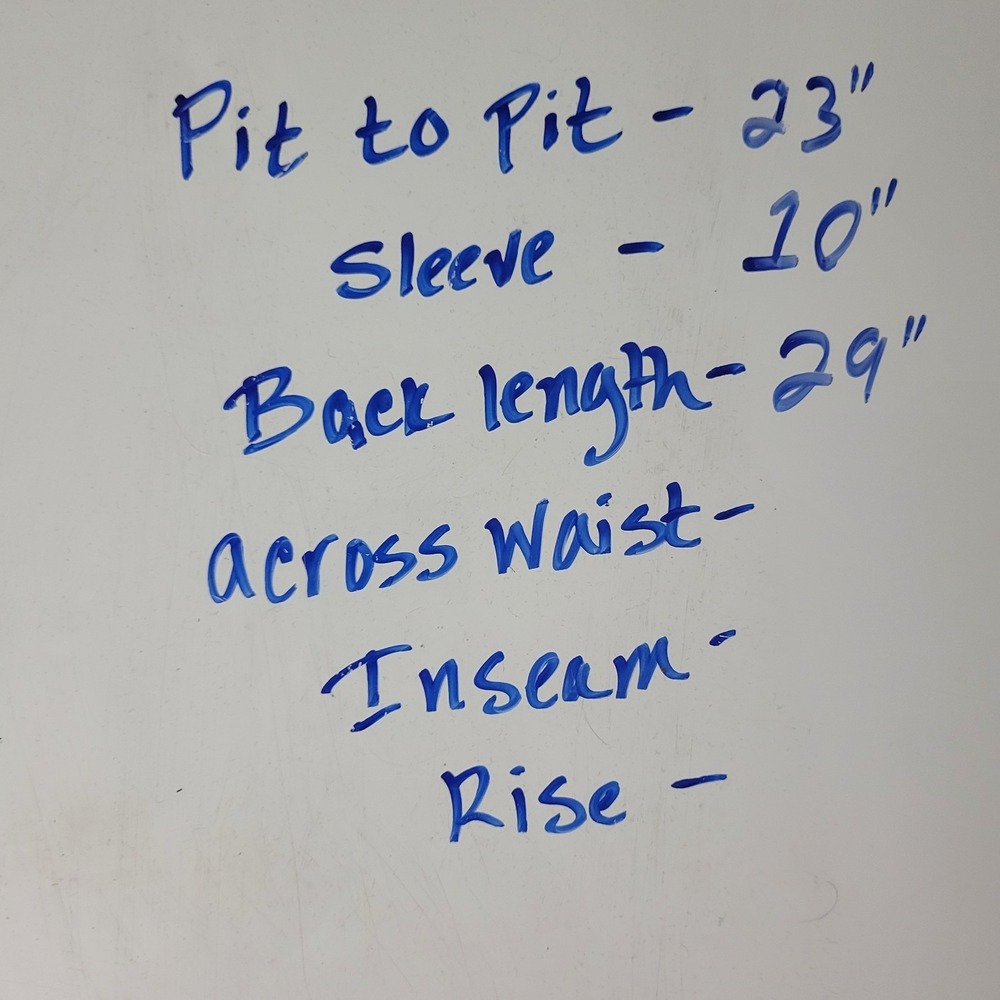 Pit to Pit - 23"
Sleeve - 10"
Back length - 29"
across Waist -
Inseam -
Rise -